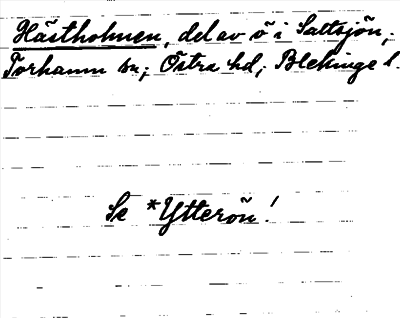 Hästholmen, del av ö i Saltsjön,
Torhamn sn; Östra hd; Blekinge l.
Se *Ytterön!